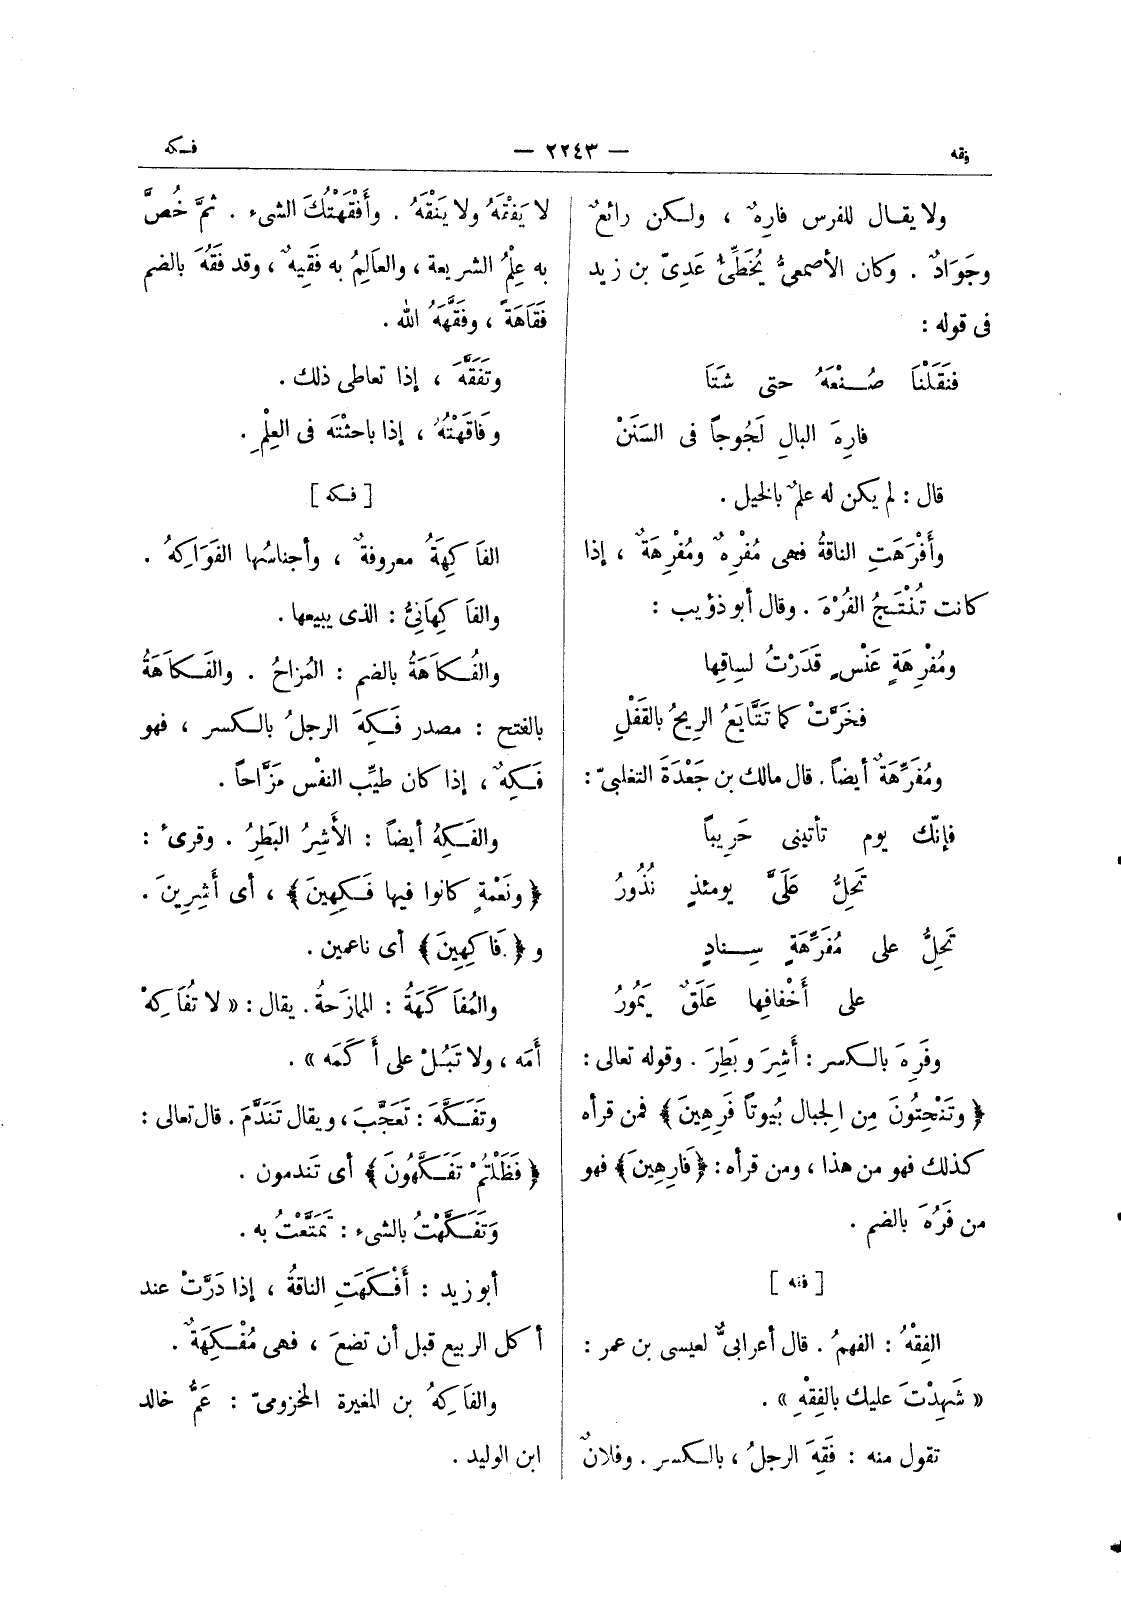 فقه
— ٢٢٤٣ —
فكه
ولا يقال للفرس فارِهٌ ، ولكن رائعٌ
وجَوَادٌ . وكان الأصمعىُّ يُخَطِّئُ عَدِىّ بن زيد
فى قوله :
فنَقَلْنَا صُنْعَهُ حتى شَتَا
فارِهَ البالِ لَجُوجاً فى السَنَنْ
قال : لم يكن له علمٌ بالخيل .
وأَفْرَهَتِ الناقةُ فهى مُفْرِهٌ ومُفْرِهَةٌ ، إذا
كانت تُنْتَجُ الفُرْهَ . وقال أبو ذؤيب :
ومُفْرِهَةٍ عَنْسٍ قَدَرْتُ لساقِها
فخَرَّتْ كما تَتَّايَعُ الريحُ بالقَفْلِ
ومُفَرِّهَةٌ أيضاً . قال مالك بن جَعْدَةَ التغلبىّ :
فإنّك يوم تأتينى حَرِيباً
تَحِلُّ عَلَىَّ يومئذٍ نُذُورُ
تَحِلُّ على مُفَرِّهَةٍ سِنادٍ
على أَخْفافِها عَلَقٌ يَمُورُ
وفَرِهَ بالكسر : أَشِرَ وبَطِرَ . وقوله تعالى :
﴿ وتَنْحِتُونَ مِن الجبال بُيوتاً فَرِهِينَ ﴾ فمن قرأه
كذلك فهو من هذا ، ومن قرأه : ﴿ فَارِهِينَ ﴾ فهو
من فَرُهَ بالضم .
[ فقه ]
الفِقْهُ : الفهمُ . قال أعرابىٌّ لعيسى بن عمر :
« شَهِدْتَ عليك بالفِقْهِ » .
تقول منه : فَقِهَ الرجلُ ، بالكسر . وفلانٌ
لا يَفْقَهُ ولا يَنْقَهُ . وأَفْقَهْتُكَ الشىء . ثمَّ خُصَّ
به عِلْمُ الشريعة ، والعَالِمُ به فَقِيهٌ ، وقد فَقُهَ بالضم
فَقَاهَةً ، وفَقَّهَهُ الله .
وتَفَقَّهَ ، إذا تعاطى ذلك .
وفَاقَهْتُهُ ، إذا باحثْتَه فى العِلْمِ .
[ فكه ]
الفاكِهَةُ معروفةٌ ، وأجناسُها الفَوَاكِهُ .
والفاكِهَانِىُّ : الذى يبيعها .
والفُكاَهَةُ بالضم : المُزاحُ . والفَكاَهَةُ
بالفتح : مصدر فَكِهَ الرجلُ بالكسر ، فهو
فَكِهٌ ، إذا كان طيِّب النفْس مَزَّاحاً .
والفَكِهُ أيضاً : الأَشِرُ البَطِرُ . وقرئ :
﴿ ونَعْمةٍ كانوا فيها فَكِهِينَ ﴾ ، أى أَشِرِينَ .
و ﴿ فَاكِهِينَ ﴾ أى ناعمين .
والمُفاكَهَةُ : الممازَحةُ . يقال : « لا تُفَاكِهْ
أَمَه ، ولا تَبُلْ على أَكَمَه » .
وتَفَكَّهَ : تَعَجَّبَ ، ويقال تَنَدَّمَ . قال تعالى :
﴿ فَظَلْتُمْ تَفَكَّهُونَ ﴾ أى تَندمون .
وَتَفَكَّهْتُ بالشىء : تَمَتَّعْتُ به .
أبو زيد : أَفْكَهَتِ الناقةُ ، إذا دَرَّتْ عند
أكل الربيع قبل أن تضعَ ، فهى مُفْكِهَةٌ .
والفاكِهُ بن المغيرة المخزومىّ : عَمُّ خالد
ابن الوليد .